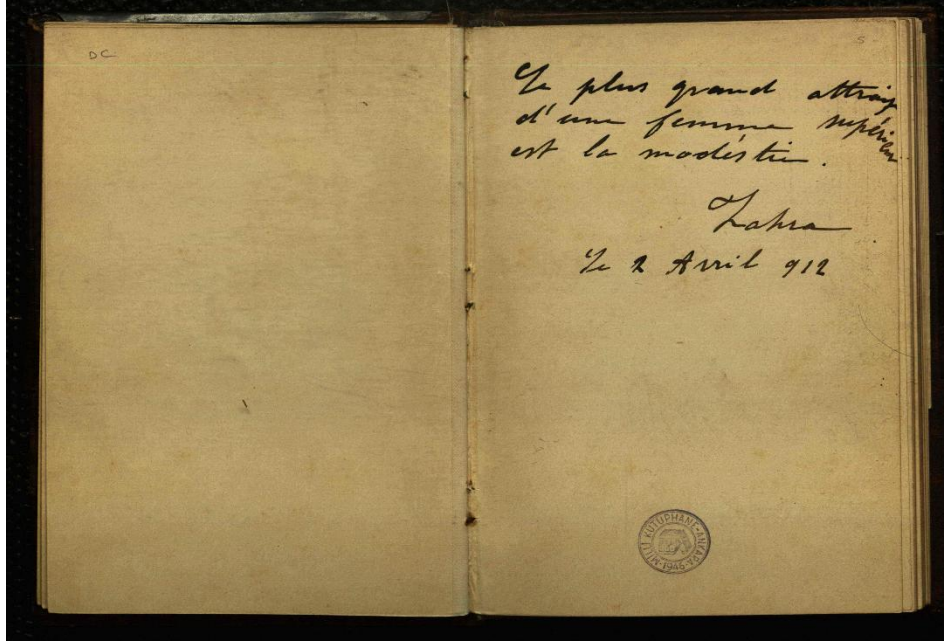 DC
5
Le plus grand attrait
d'une femme supérieure
est la modéstie.
Zahra
Le 2 Avril 912
MİLLİ KÜTÜPHANE-ANKARA
-1946-